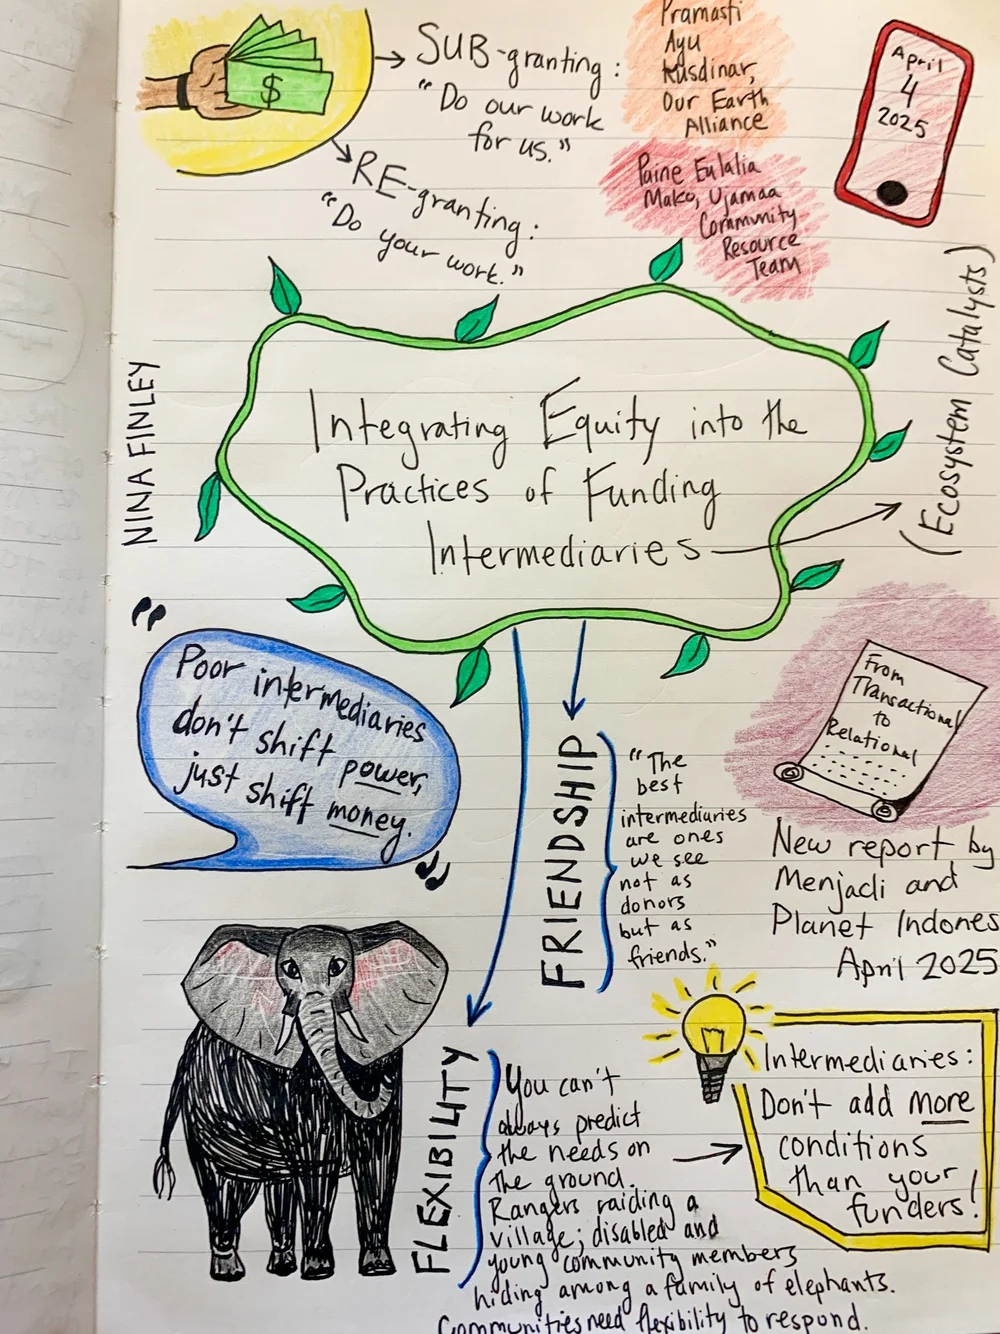 SUB-granting:
"Do our work
for us."
RE-granting:
"Do your work."
$
Pramasti
Ayu
Kusdinar,
Our Earth
Alliance
Paine Eulalia
Mako, Ujamaa
Community
Resource
Team
April
4
2025
NINA FINLEY
Integrating Equity into the
Practices of Funding
Intermediaries
(Ecosystem Catalysts)
"
Poor intermediaries
don't shift power,
just shift money.
"
FRIENDSHIP
"The
best
intermediaries
are ones
we see
not as
donors
but as
friends."
From
Transactional
to
Relational
New report by
Menjadi and
Planet Indones
April 2025
FLEXIBILITY
You can't
always predict
the needs on
the ground.
Rangers raiding a
village; disabled and
young community members
hiding among a family of elephants.
Communities need flexibility to respond.
Intermediaries:
Don't add more
conditions
than your
funders!